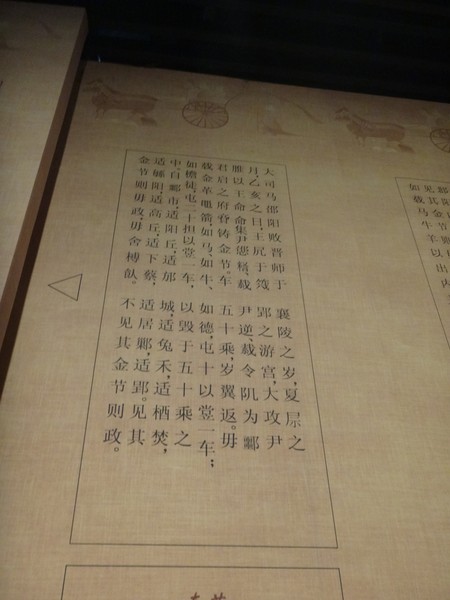 大司马邵阳败晋师于襄陵之岁,夏𡰥之
月,乙亥之日,王凥于筬郢之游宫,大攻尹
脽以王命命集尹悊、裁尹逆、裁令阢为
君启之府铸金节。车五十乘,岁翼返。毋
载金革黾箭,如马、如牛、如德,屯十以堂一车,
如檐徒,屯二十担以堂一车,以毁于五十乘之
中。自市,适阳丘,适邡城,适兔禾,适栖焚,
适阳,适高丘,适下蔡,适居,适郢。见其
金节则毋政,毋舍槫飤。不见其金节则政。
见其金节
如载马牛羊以出内